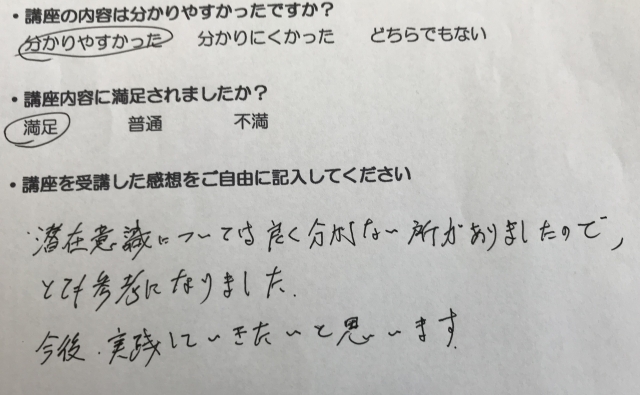 ・講座の内容は分かりやすかったですか？
分かりやすかった 分かりにくかった どちらでもない
・講座内容に満足されましたか？
満足 普通 不満
・講座を受講した感想をご自由に記入してください
潜在意識については良く分からない所がありましたので、
とても参考になりました.
今後、実践していきたいと思います.